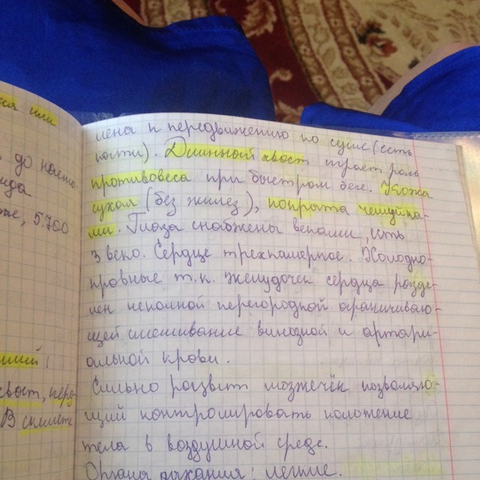 ия или
, до насто
ида
же, 5700
ший!
хвост, пере
В
лена к передвижению по суше (есть
ногти). Длинный хвост играет роль
противовеса при быстром беге. Кожа
сухая (без желез), покрыта чешуйка-
ми. Глаза снабжены веками, есть
3 веко. Сердце трехкамерное. Холодно-
кровные т.к. желудочек сердца разде-
лен неполной перегородкой ограничиваю-
щей смешивание венозной и артери-
альной крови.
Сильно развит мозжечек позволяю-
щий контролировать положение
тела в воздушной среде.
Органы дыхания: легкие.